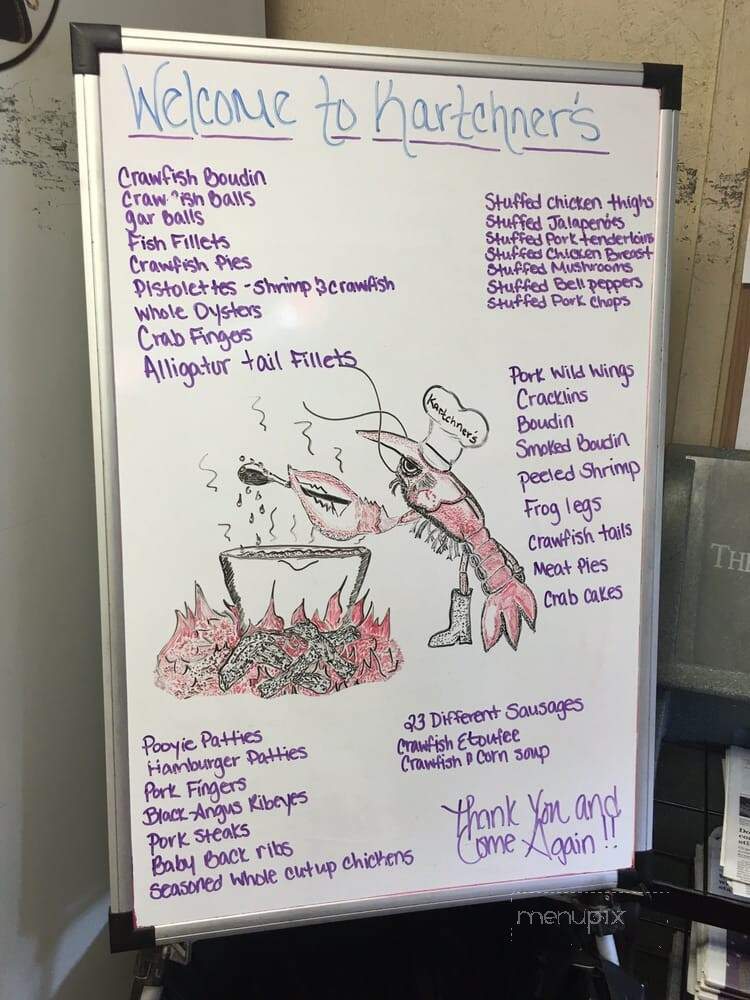 Welcome to Kartchner's
Crawfish Boudin
Craw fish Balls
gar Balls
Fish Fillets
Crawfish Pies
Pistolettes - Shrimp & crawfish
Whole Oysters
Crab Fingers
Alligatur tail Fillets
Stuffed Chicken thighs
Stuffed Jalapenoes
Stuffed Pork tenderloins
Stuffed Chicken Breast
Stuffed Mushrooms
Stuffed Bell peppers
Stuffed Pork Chops
Pork Wild Wings
Cracklins
Boudin
Smoked Boudin
peeled Shrimp
Frog legs
Crawfish tails
Meat Pies
Crab Cakes
Kartchner's
Pooyie Patties
Hamburger Patties
Pork Fingers
Black-Angus Ribeyes
Pork Steaks
Baby Back ribs
Seasoned Whole cut up chickens
23 Different Sausages
Crawfish Etoufee
Crawfish & Corn soup
Thank You and
Come Again!!
TH
menupix